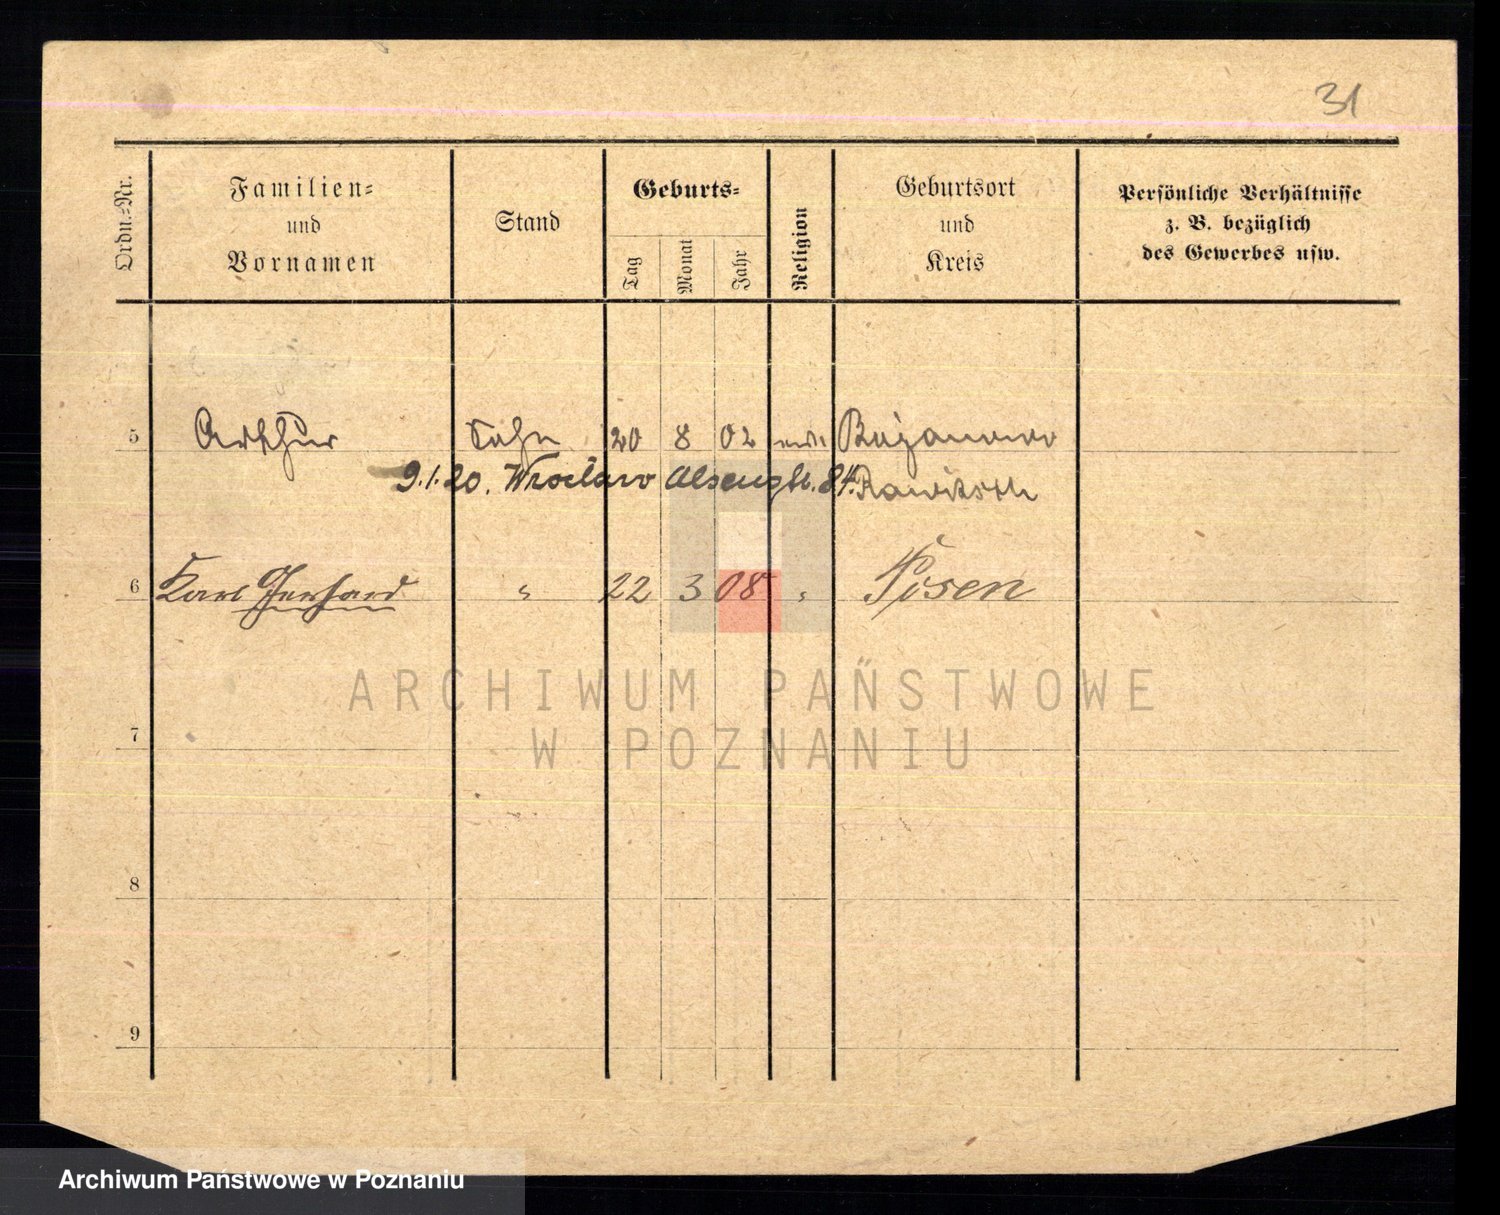 31
Ordn.-Nr.
Familien-
und
Vornamen
Stand
Geburts-
Tag
Monat
Jahr
Religion
Geburtsort
und
Kreis
Persönliche Verhältnisse
z. B. bezüglich
des Gewerbes usw.
5 Arthur Sohn 20 8 02
9.1.20. Wrocław Alsenstr. 84. Rawitsch
6 Karl Gerhard " 22 3 08 " Posen
ARCHIWUM PAŃSTWOWE
W POZNANIU
7
8
9
Archiwum Państwowe w Poznaniu